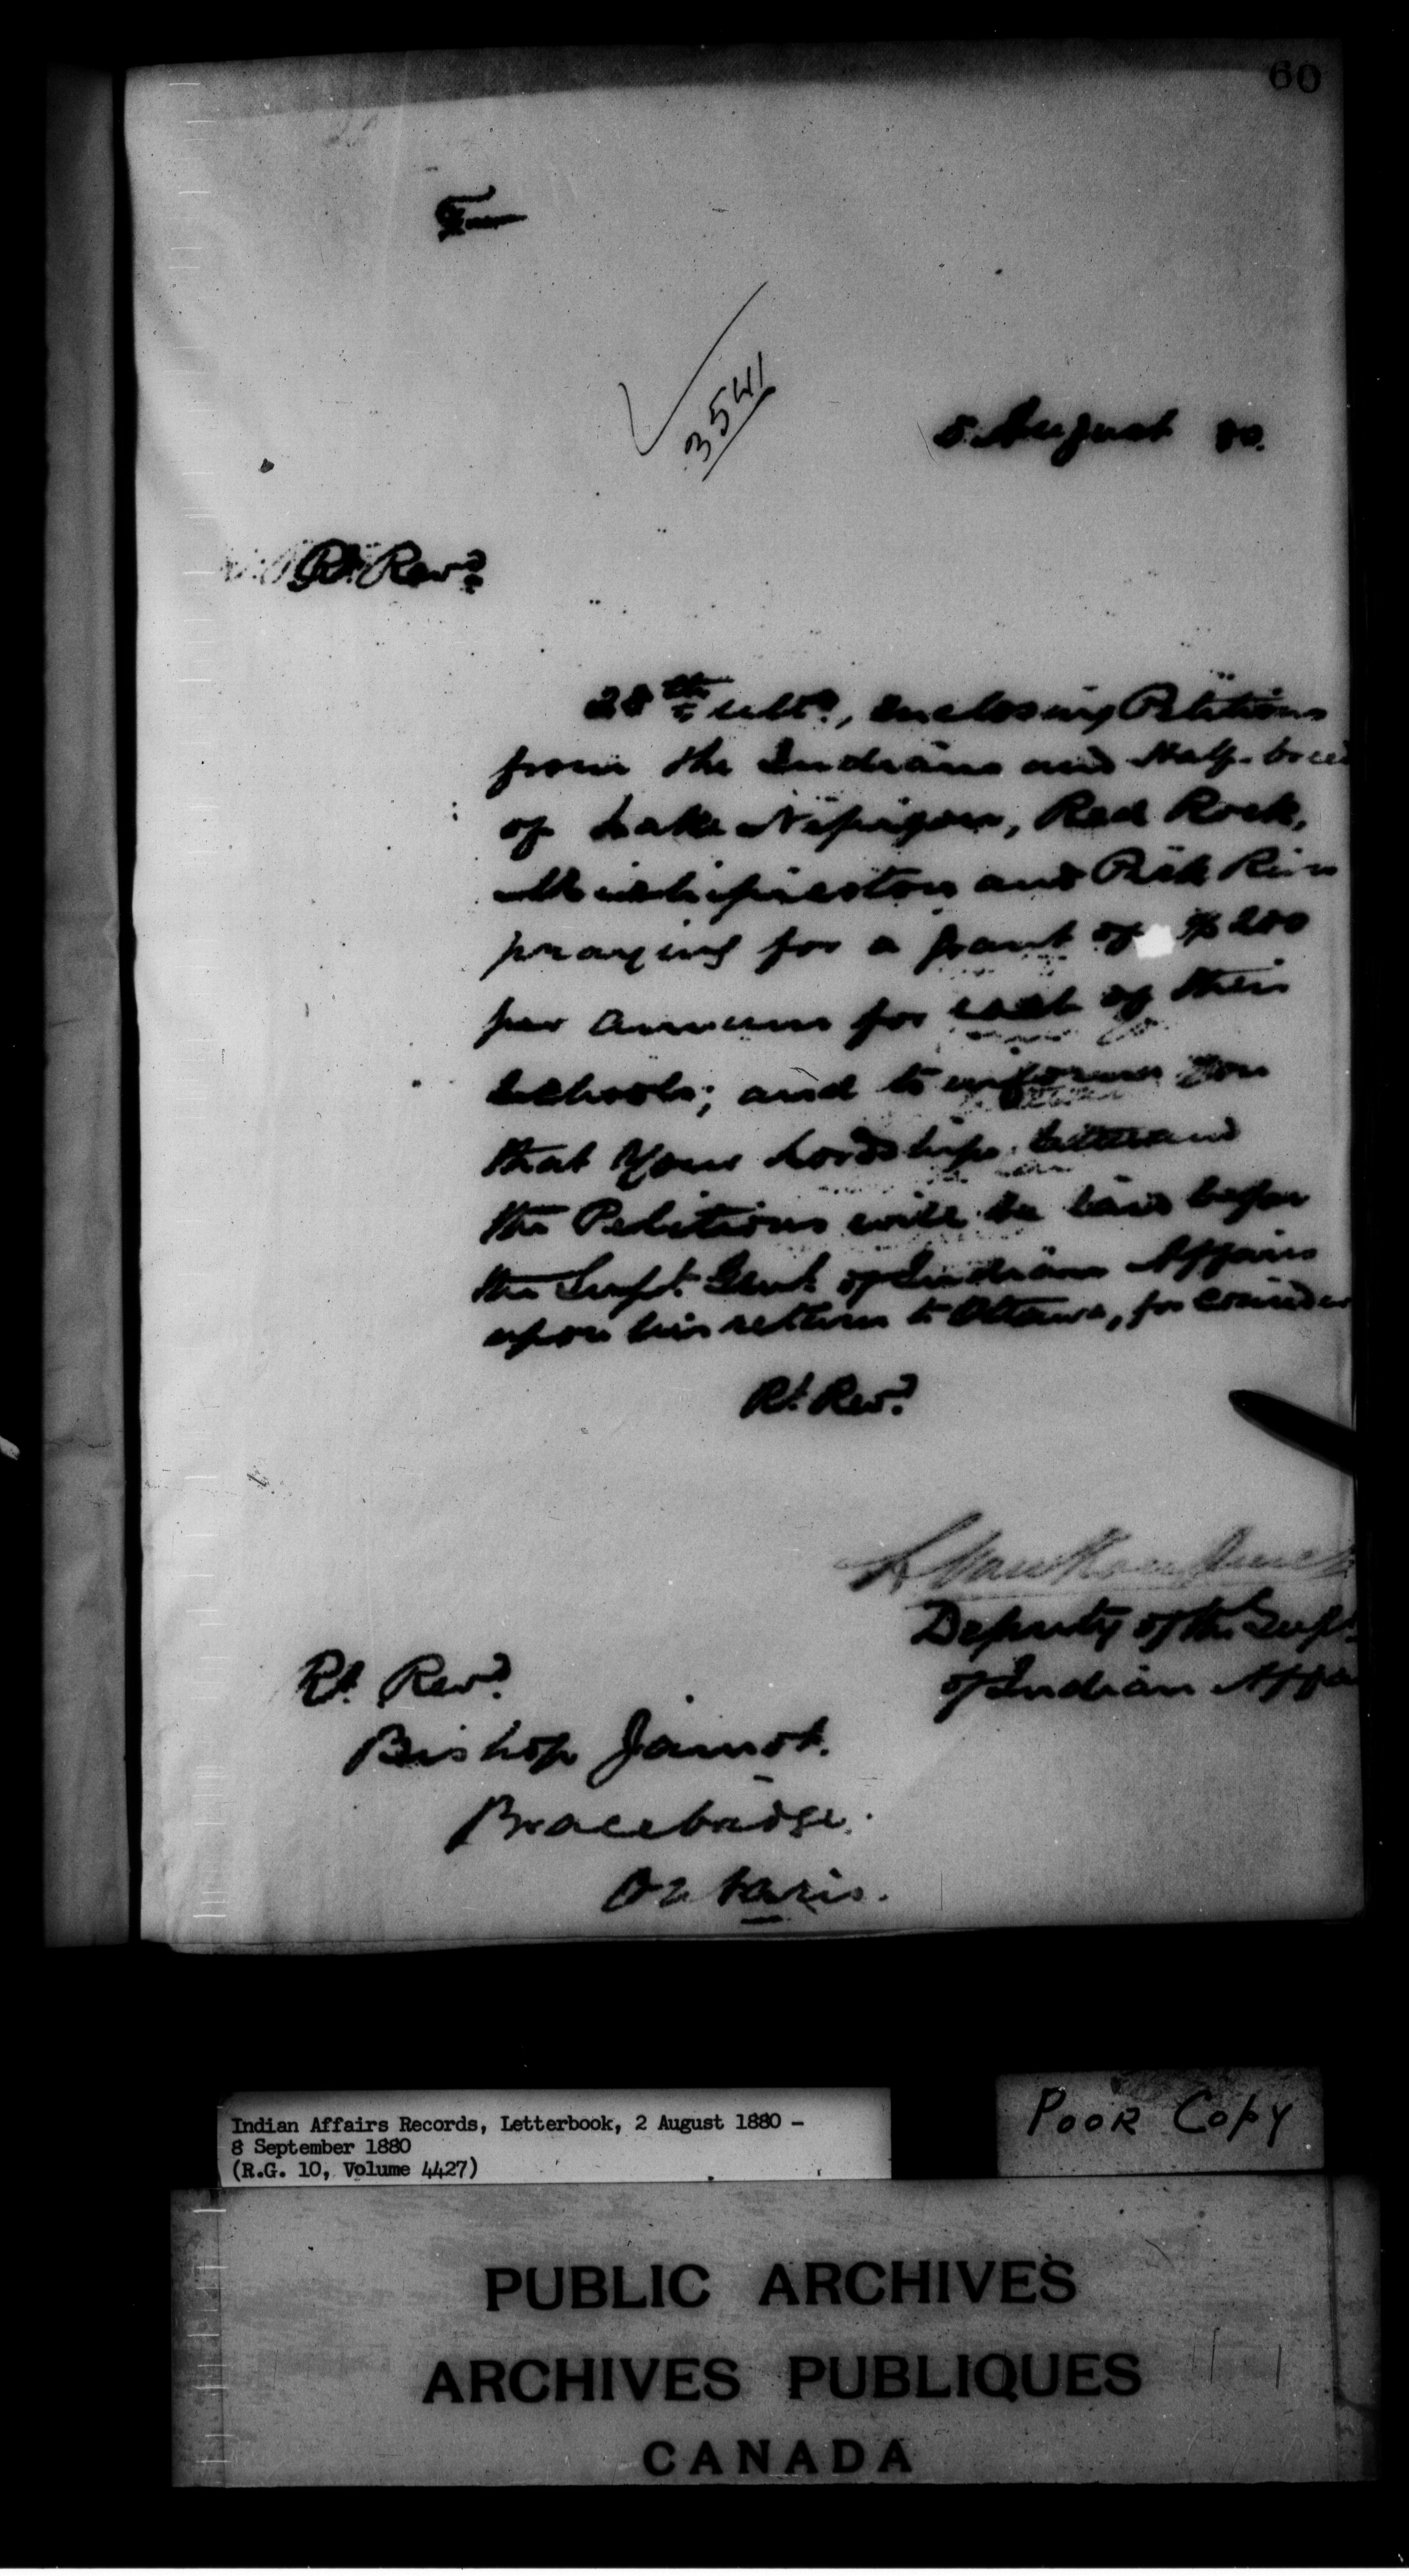 60
3541
5 August 80.
Rt. Revd.
28th ulto., enclosing Petitions
from the Indians and Half-breed
of Lake Nipigon, Red Rock,
Michipicoton and Pick River
praying for a grant of $200
per annum for each of their
Schools; and to inform you
that Your Lordships letter and
the Petitions will be laid before
the Supt. Genl. of Indian Affairs
upon his return to Ottawa, for consider
Rt. Revd.
L VanKoughnet
Deputy of the Supt.
of Indian Affa
Rt. Revd.
Bishop Jamot.
Bracebridge.
Ontario.
Indian Affairs Records, Letterbook, 2 August 1880 -
8 September 1880
(R.G. 10, Volume 4427)
POOR COPY
PUBLIC ARCHIVES
ARCHIVES PUBLIQUES
CANADA